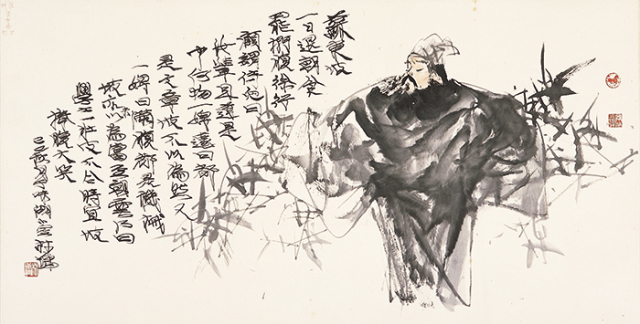 蘇東坡
一日退朝食
罷捫腹徐行
顧謂侍兒曰
汝輩且道是
中何物一婢遽曰都
是文章坡不以為然又
一婢曰滿腹都是機械
坡亦以為當至朝雲乃曰
學士一肚皮不合時宜坡
捧腹大笑